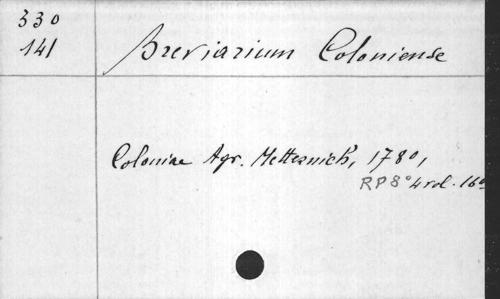 330
141
Breviarium Coloniense
Coloniae Agr. Metternich, 1780,
RP8° 4 vol. 16°